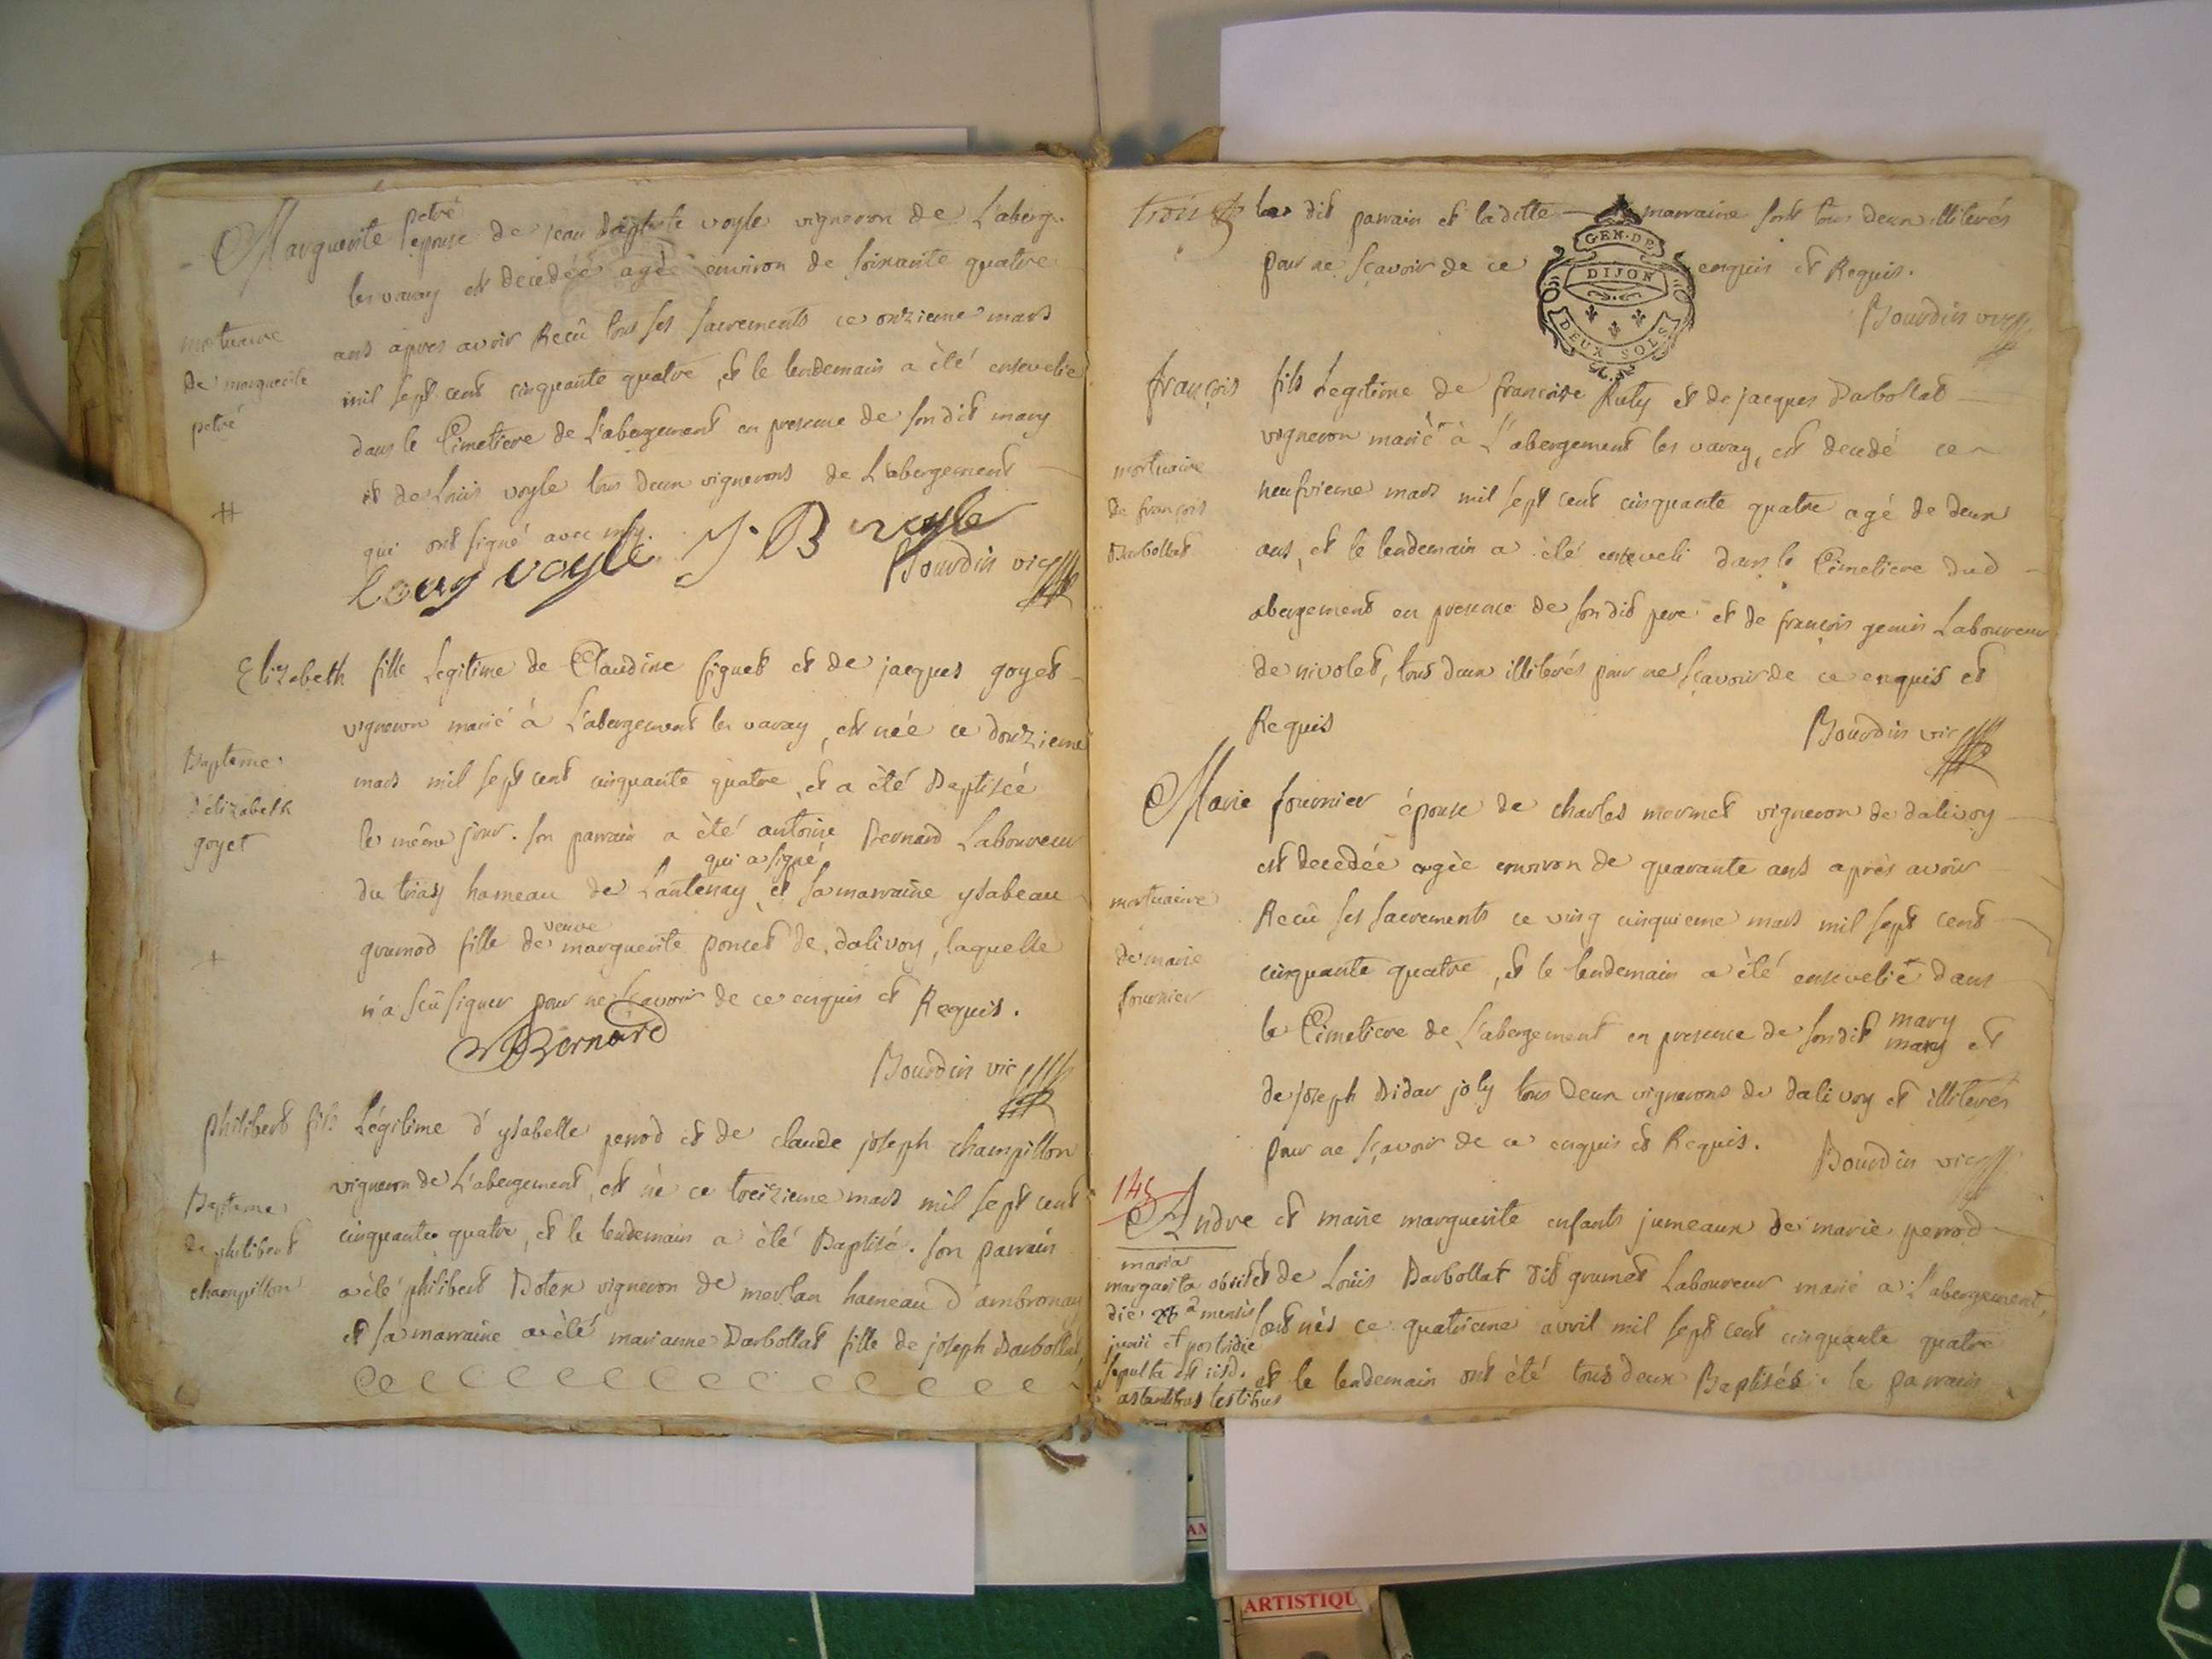 Marguerite petré épouse de jean Baptiste voyle vigneron de L'aberg.
les varay est decedée agée environ de soixante quatre
ans apres avoir Reçû tous ses sacrements ce onzieme mars
mil sept cent cinquante quatre, et le lendemain a été ensevelie
dans le Cimetiere de L'abergement en presence de son dit mary
et de Loüis voyle tous deux vignerons de L'abergement
qui ont signé avec moy.
mortuaire
de marguerite
petré
Louy voyle J. B voyle
Bourdin vic
Elizabeth fille Legitime de Claudine figuet et de jacques goyet
vigneron marié à L'abergement les varay, est née ce douzieme
mars mil sept cent cinquante quatre, et a été Baptisée
le même jour. son parrain a été antoine Bernard Laboureur
qui a signé
du triay hameau de Lantenay, et sa marraine ysabeau
veuve
gramod fille de marguerite poncet de dalivoy, laquelle
n'a sçû signer pour ne sçavoir de ce enquis et Requis.
Bapteme
d'elizabeth
goyet
Bernard
Bourdin vic
philibert fils Légitime d'ysabelle perrod et de claude joseph champillon
vigneron de L'abergement, est né ce treizieme mars mil sept cent
cinquante quatre, et le lendemain a été Baptisé. son parrain
a été philibert Botex vigneron de merlan hameau d'ambronay
et sa marraine a été marianne Darbollat fille de joseph Darbollat
Bapteme
de philibert
champillon
trois
les dit parrain et laditte marraine sont tous deux illiterés
pour ne sçavoir de ce enquis et Requis.
GEN. DE
DIJON
DEUX SOLS
Bourdin vic
françois fils Legitime de francoise Ruty et de jacques Darbollat
vigneron marié à L'abergement les varay, est decedé ce
neufvieme mars mil sept cent cinquante quatre agé de deux
ans, et le lendemain a été enseveli dans le Cimetiere dud
abergement en presence de son dit pere et de françois genin Laboureur
de nivolet, tous deux illiterés pour ne sçavoir de ce enquis et
Requis
mortuaire
de françois
Darbollat
Bourdin vic
Marie fournier épouse de charles mermet vigneron de dalivoy
est decedée agée environ de quarante ans après avoir
Reçû ses sacrements ce ving cinquieme mars mil sept cent
cinquante quatre, et le lendemain a été ensevelie dans
le Cimetiere de L'abergement en presence de son dit mary et
mary
de joseph Didar joly tous deux vignerons de dalivoy et illiterés
pour ne sçavoir de ce enquis et Requis.
mortuaire
de marie
fournier
Bourdin vic
145
Andre et marie marguerite enfants jumeaux de marie perrod
et de Loüis Darbollat dit grumet Laboureur marié a L'abergement,
sont nés ce quatrieme avril mil sept cent cinquante quatre
et le lendemain ont été tous deux Baptisés. le parrain
maria
margarita obiit
die mensis
junii et postridie
sepulta est iisd.
astantibus testibus